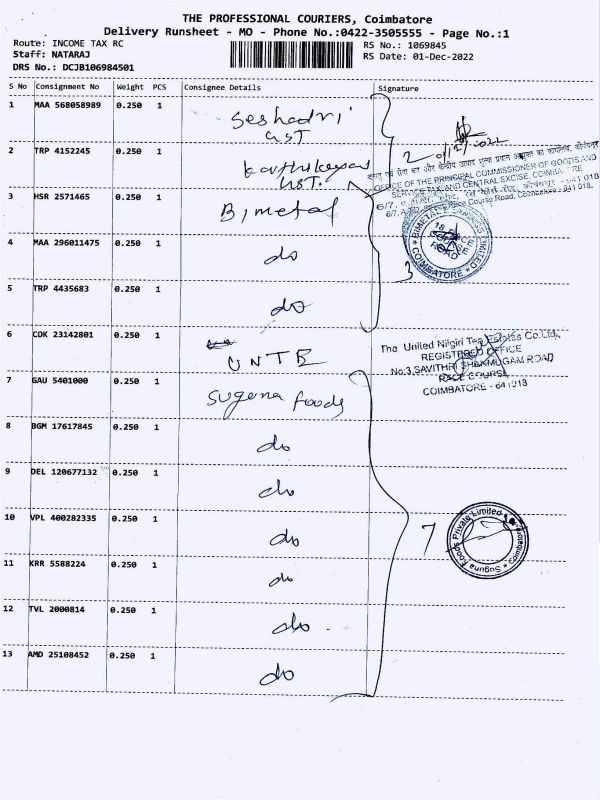 THE PROFESSIONAL COURIERS, Coimbatore
Delivery Runsheet - MO - Phone No.:0422-3505555 - Page No.:1
Route: INCOME TAX RC
RS No.: 1069845
Staff: NATARAJ
RS Date: 01-Dec-2022
DRS No.: DCJB106984501
S No Consignment No Weight PCS Consignee Details Signature
1 MAA 568058989 0.250 1 Seshadri
GST
2 TRP 4152245 0.250 1 Karthikeyan 2
GST.
OFFICE OF THE PRINCIPAL COMMISSIONER OF GOODS AND
SERVICE TAX AND CENTRAL EXCISE, COIMBATORE
6/7, Race Course Road, Coimbatore - 641 018.
3 HSR 2571465 0.250 1 Bimetal 3
BIMETAL LIMITED
COIMBATORE
4 MAA 296011475 0.250 1 do
5 TRP 4435683 0.250 1 do
6 CDK 23142801 0.250 1 UNTE
The United Nilgiri Tea Estates Co.Ltd.,
REGISTERED OFFICE
No:3,SAVITHRI SHANMUGAM ROAD
RACE COURSE
COIMBATORE - 641018
7 GAU 5401000 0.250 1 Suguna foods
8 BGM 17617845 0.250 1 do
9 DEL 120677132 0.250 1 do
10 VPL 400282335 0.250 1 do 7
Suguna Foods Private Limited
Coimbatore
11 KRR 5588224 0.250 1 do
12 TVL 2000814 0.250 1 do
13 AMD 25108452 0.250 1 do